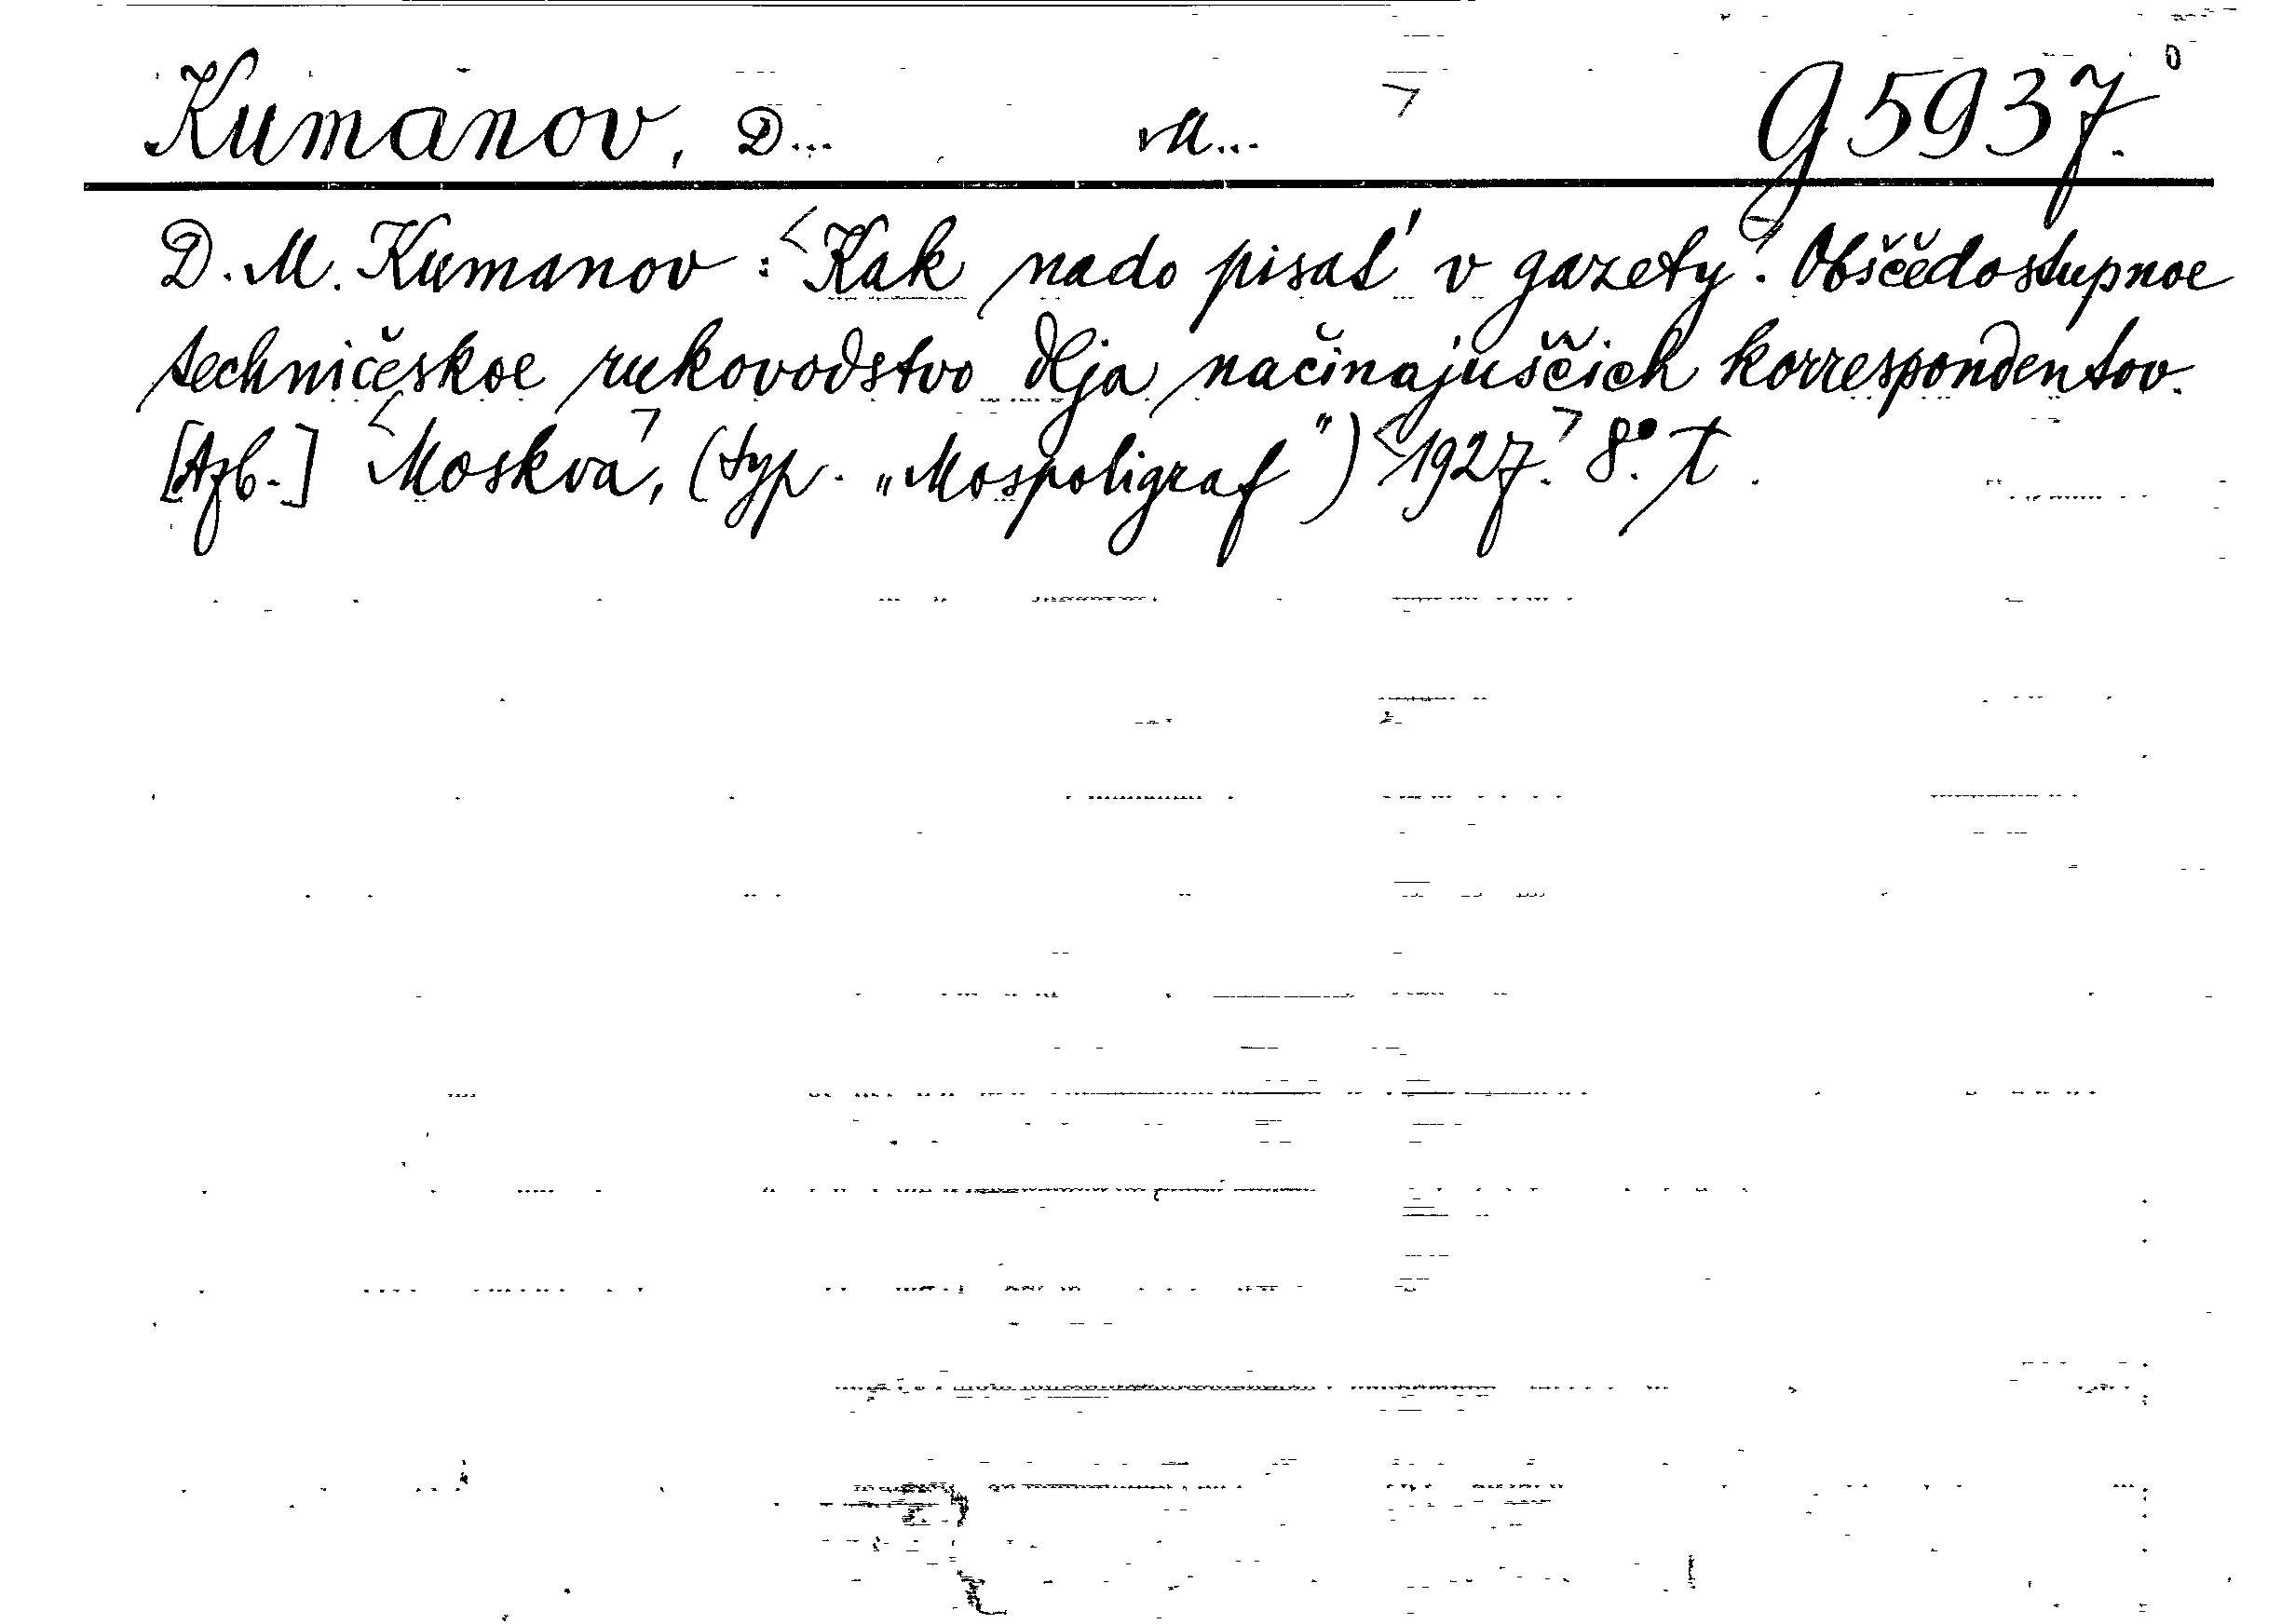 Kumanov, D... M... G 5937.
D. M. Kumanov: Kak nado pisat' v gazety. Obščedostupnoe
techničeskoe rukovodstvo dlja načinajuščich korrespondentov.
[Azb.] Moskva, (typ. „Mospoligraf") 1927. 8° t.